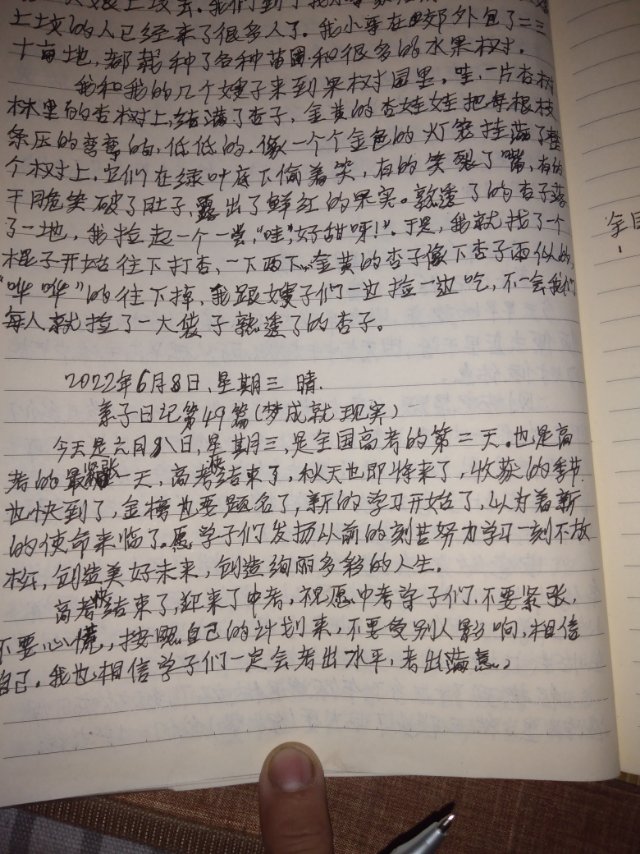 上坟的人已经来了很多人了。我小哥在郊外包了二三
十亩地,都栽种了各种苗圃和很多的水果树。
我和我的几个嫂子来到果树园里。哇,一片杏树
林里的杏树上,结满了杏子,金黄的杏娃娃把每根枝
条压的弯弯的,低低的,像一个个金色的灯笼挂满了整
个树上,它们在绿叶底下偷着笑,有的笑裂了嘴,有的
干脆笑破了肚子,露出了鲜红的果实。熟透了的杏子落
了一地,我捡起一个一尝,“哇,好甜呀!”于是,我就找了一个
棍子开始往下打杏,一下两下,金黄的杏子像下杏子雨似的,
“哗哗”的往下掉,我跟嫂子们一边捡一边吃,不一会我们
每人就捡了一大袋子熟透了的杏子。
2022年6月8日,星期三 晴.
亲子日记第49篇(梦成就现实)
今天是六月八日,星期三,是全国高考的第二天。也是高
考的最紧张一天,高考结束了,秋天也即将来了,收获的季节
也快到了,金榜也要题名了,新的学习开始了,以为着新
的使命来临了。愿学子们发扬以前的刻苦努力学习一刻不放
松,创造美好未来,创造绚丽多彩的人生。
高考结束了,迎来了中考,祝愿中考学子们,不要紧张,
不要心慌,按照自己的计划来,不要受别人影响,相信
自己。我也相信学子们一定会考出水平,考出满意。